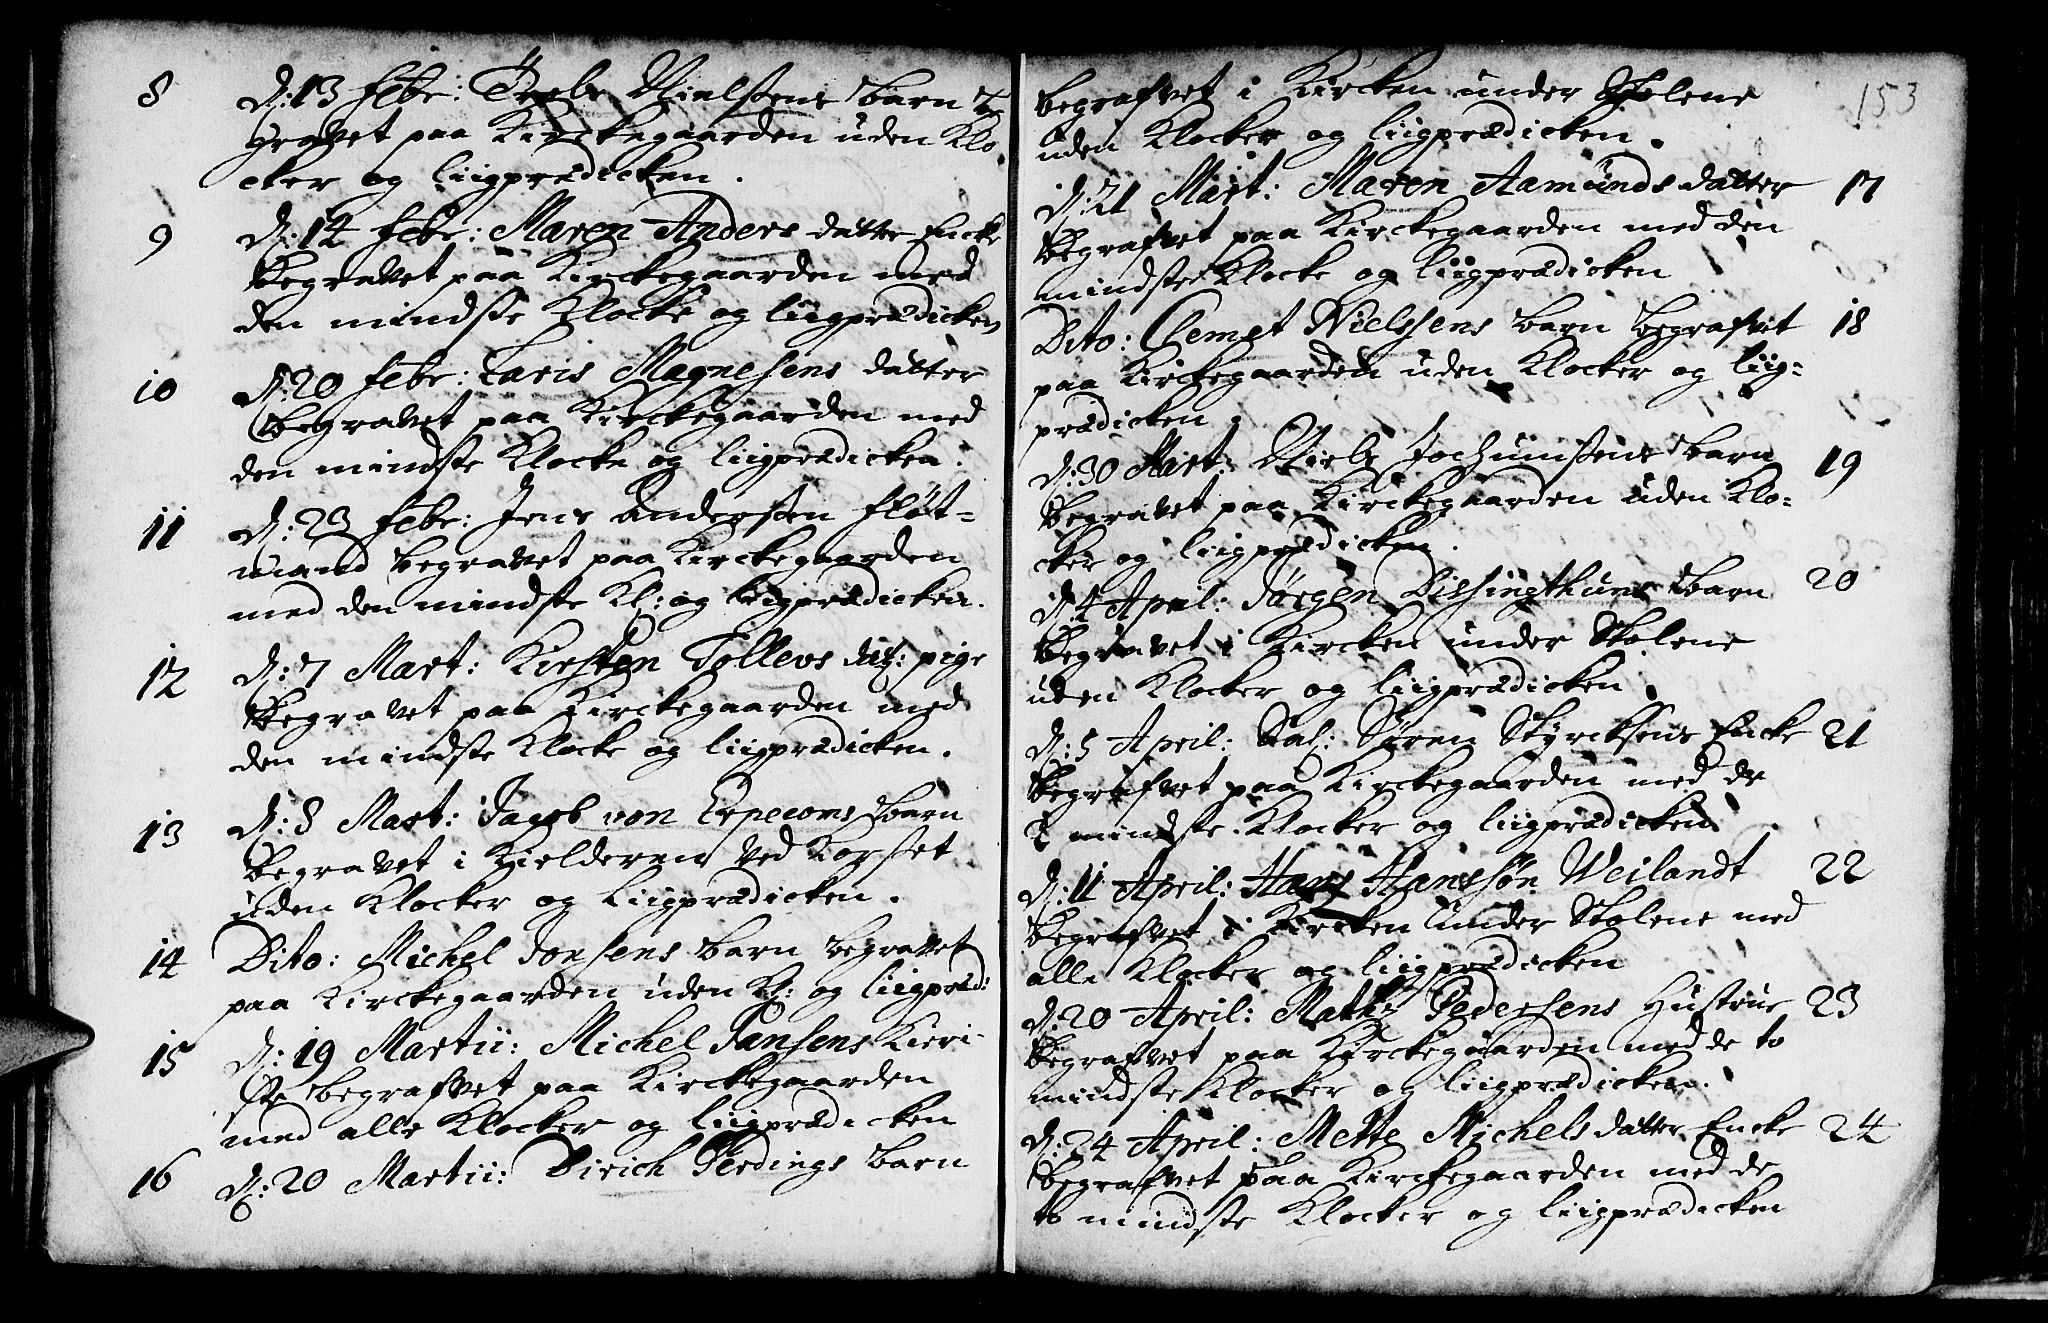 8 d. 13 Febr: Troels Nielsens barn be-
gravet paa Kirckegaarden uden Klo-
cker og liigprædicken.
9 d. 14 Febr: Maren Anders datter Encke
begravet paa Kirckegaarden med
den mindste Klocke og liigprædicken
10 d. 20 Febr: Laris Magnesens datter
begravet paa Kirckegaarden med
den mindste Klocke og liigprædicken.
11 d. 23 Febr: Jens Andersen fløt-
mand begravet paa Kirckegaarden
med den mindste Kl: og liigprædicken.
12 d. 7 Mart: Kirsten Tollevs dat: pige
begravet paa Kirckegaarden med
den mindste Klocke og liigprædicken.
13 d. 8 Mart: Jacob von Erpecoms barn
begravet i Kielderen ved Korset
uden Klocker og Liigprædicken.
14 Dito: Michel Jonsens barn begravet
paa Kirckegaarden uden Kl: og liigprædi:
15 d. 19 Martii: Michel Jansens Kieri-
ste begrafvet paa Kirckegaarden
med alle Klocker og liigprædicken
16 d. 20 Martii: Dirich Gerdings barn
153
begrafvet i Kircken under Stolene
uden Klocker og liigprædicken.
d. 21 Mart: Maren Aamunds datter 17
begrafvet paa Kirckegaarden med den
mindste Klocke og liigprædicken
Dito: Clemet Nielssens barn begrafvet 18
paa Kirckegaarden uden Klocker og liig-
prædicken
d. 30 Mart: Niels Jochumsens barn 19
begravet paa Kirckegaarden uden Klo-
cker og liigprædicken.
d. 4 April: Jørgen Dissingthuns barn 20
begravet i Kircken under Stolene
uden Klocker og liigprædicken.
d. 5 April: Sal: Søren Styrcksens Encke 21
begrafvet paa Kirckegaarden med de
2 mindste Klocker og liigprædicken
d. 11 April: Hans Hanssøn Weilandt 22
begrafvet i Kircken under Stolene med
alle Klocker og liigprædicken
d. 20 April: Mathis Pedersens Hustrue 23
begrafvet paa Kirckegaarden med de to
mindste Klocker og liigprædicken.
d. 24 April: Mette Michels datter Encke 24
begrafvet paa Kirckegaarden med de
to mindste Klocker og liigprædicken